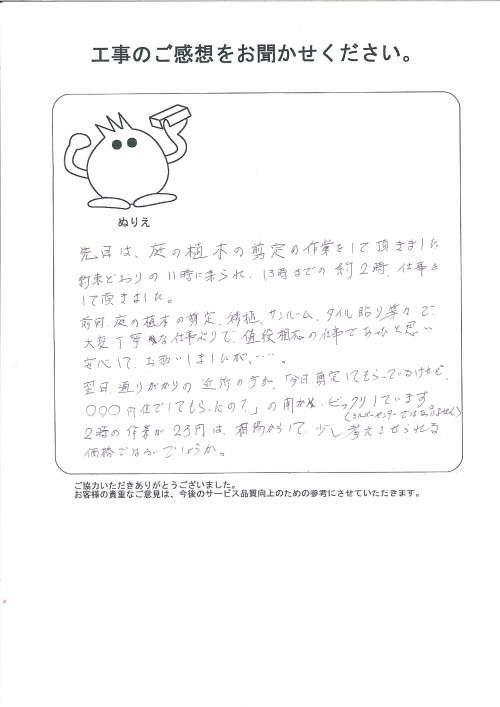 工事のご感想をお聞かせください。
ぬりえ
先日は、庭の植木の剪定の作業をして頂きました
約束どおりの11時に来られ、13時までの約2時、仕事を
して頂きました。
前回、庭の植木の剪定、移植、サンルーム、タイル貼り等々で
大変丁寧な仕事ぶりで、値段相応の仕事であったと思い
安心して、お願いしましたが、…。
翌日、通りがかりの近所の方が、「今日、剪定してもらっているけれど、
〇〇〇円位でしてもらったの?」の聞かれ、ビックリしています。
(シルバーセンターではありません)
2時の作業が23円は、相場からして、少し考えさせられる
価格ではないでしょうか。
ご協力いただきありがとうございました。
お客様の貴重なご意見は、今後のサービス品質向上のための参考にさせていただきます。